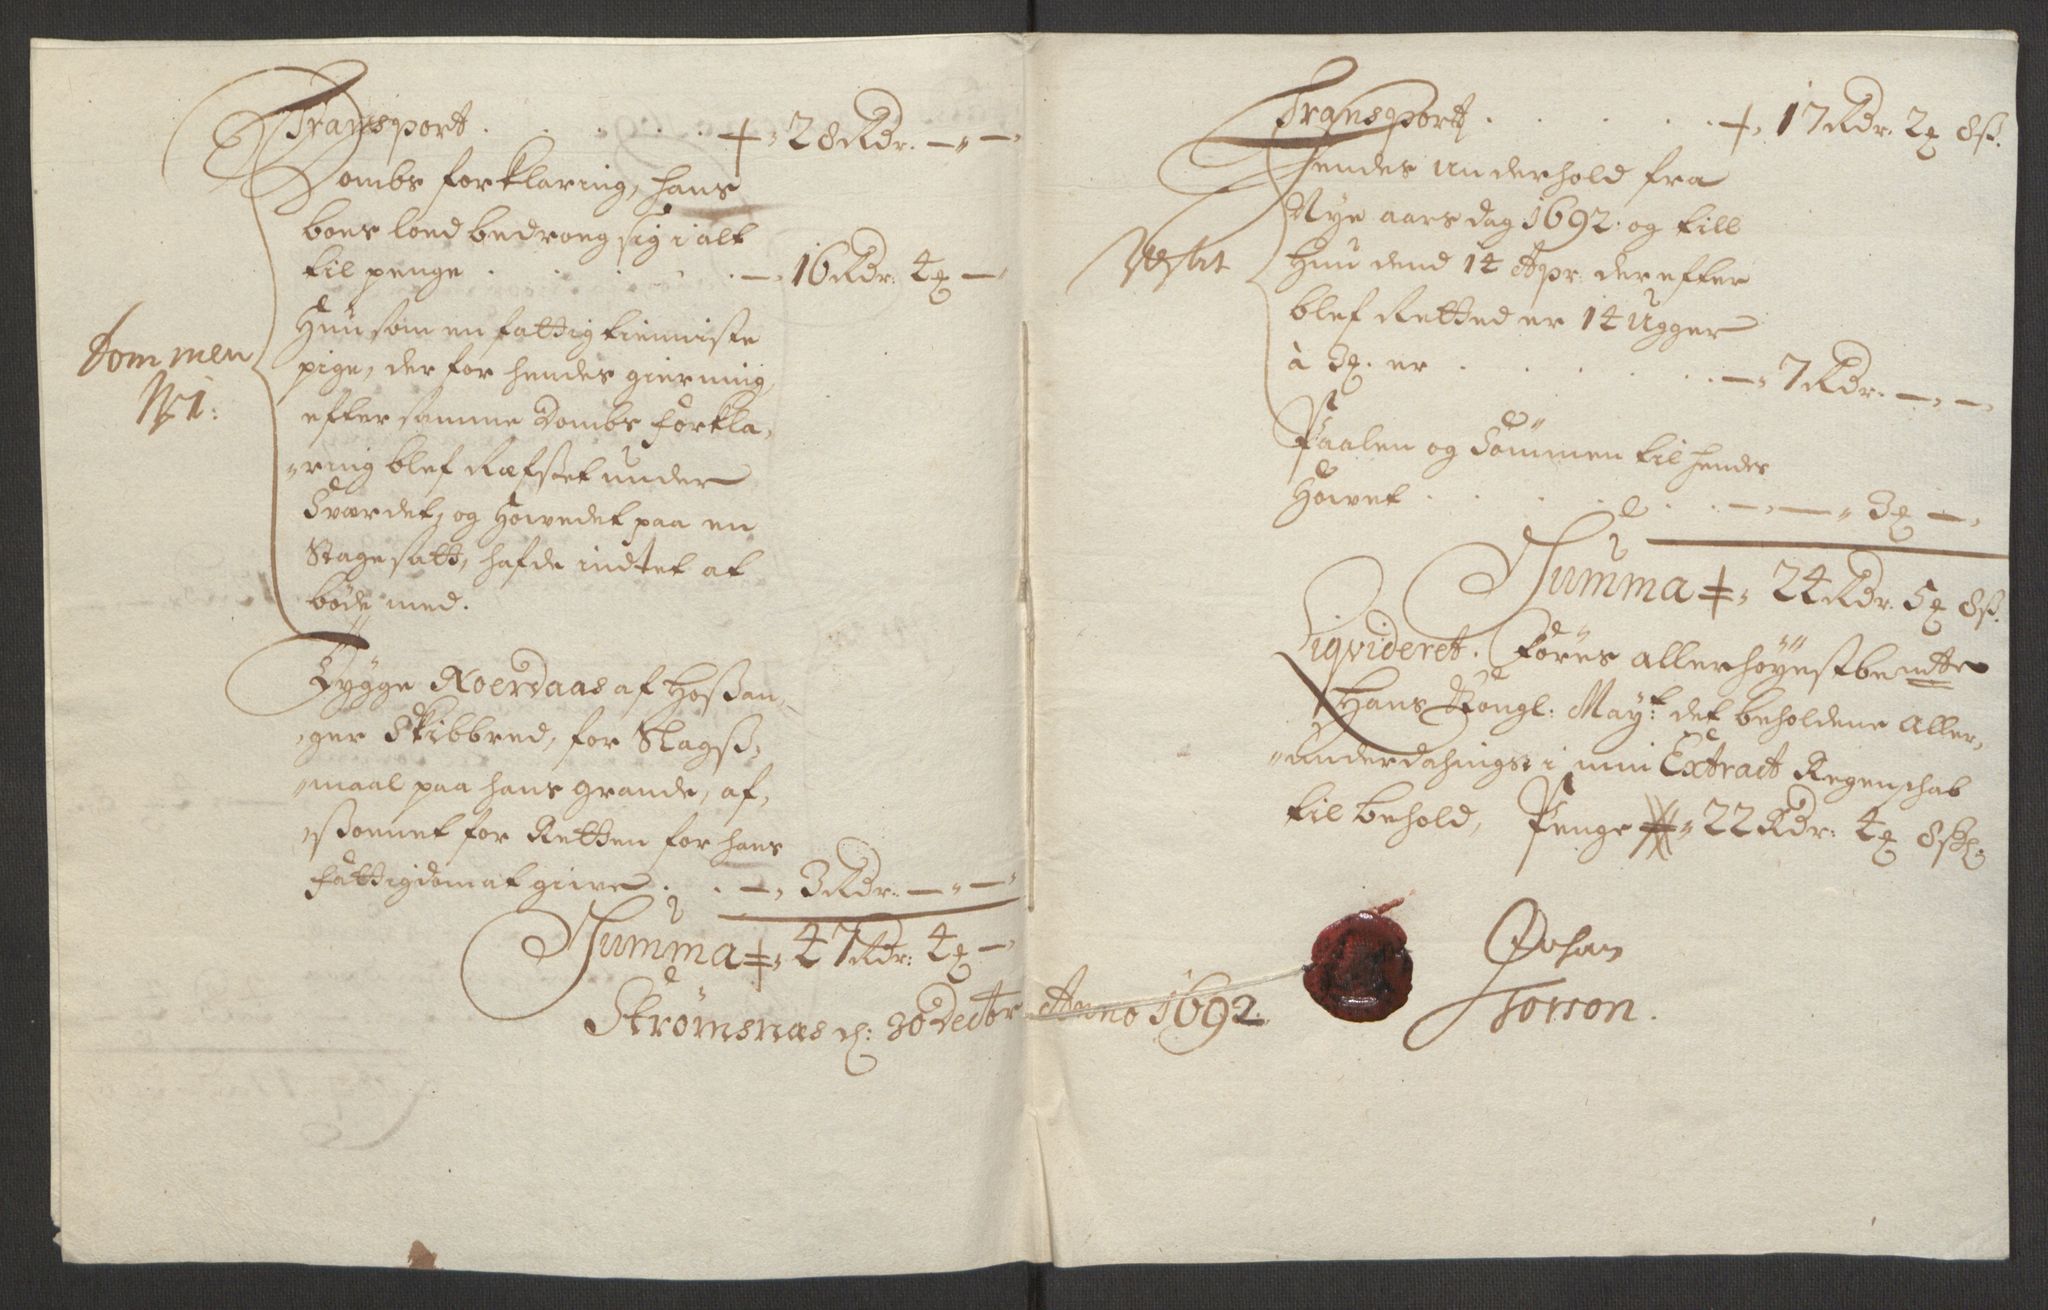 Transport . . . . . +„ 28 Rdr. —„ —
Dombs forklaring, hans
boes loed bedroeg sig i alt
til penge . . . . . —„ 16 Rdr: 4 ꝶ —
Huu som en fattig tienniste
pige, der for hendes gierning,
efter samme Dombs forkla,
„ring blef Ræfset under
Sværdet, og Howedet paa en
Stage satt, hafde indtet at
böde med.
Dommen
No 1:
Tygge Noerdaas af Hoßan,
„ger Skibbred, for Slagß,
„maal paa hans grande, af,
„ßonnet for Retten for hans
fattigdom at give . . —„ 3 Rdr. —„ —
Summa ‡„ 47 Rdr: 4 ꝶ —
Strömsnæs d: 30 Dectbr Anno 1692.
Transport . . . . . +„ 17 Rdr. 2 ꝶ 8 ß.
Hendes underhold fra
Nye aars dag 1692. og till
Huu dend 14 Apr: der efter
blef Retted er 14 Ugger
à 3 ꝶ. er . . . . . —„ 7 Rdr. —„ —
Attest
Paalen og Sömmen til hendes
Howet . . . . . —„ —„ 3 ꝶ —
Summa ‡„ 24 Rdr. 5 ꝶ 8 ß.
Liqvideret. Föres allerhöyestbemdte
Hans Kongl: Mayt: det beholdene aller,
„underdahnigst i min Extract Regenschab
til behold, Penge ‡„ 22 Rdr: 4 ꝶ 8 ßl.
Johan
Torson.